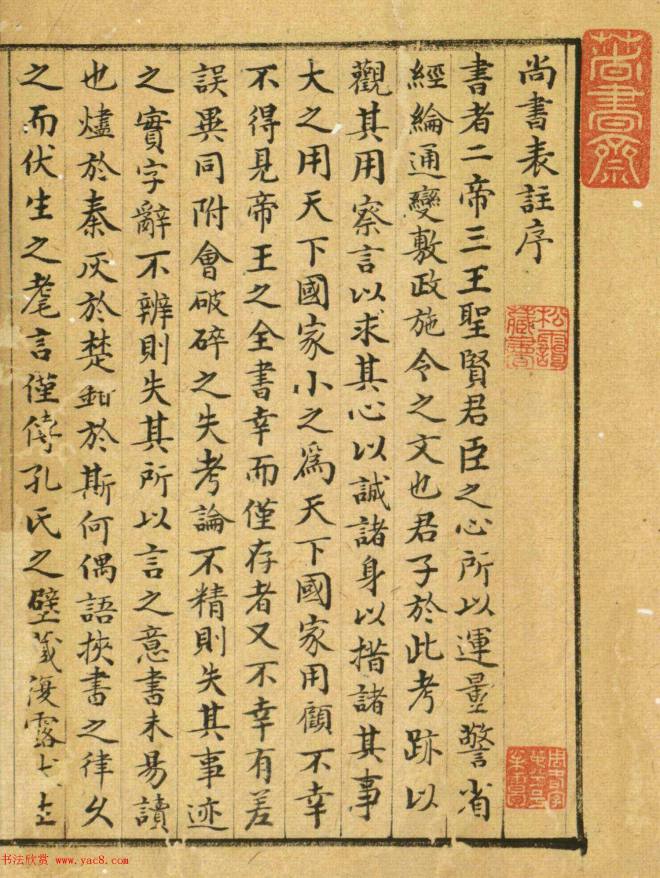 尚書齋
尚書表註序
松靄藏書
書者二帝三王聖賢君臣之心所以運量警省
經綸通變敷政施令之文也君子於此考跡以
觀其用察言以求其心以誠諸身以措諸其事
大之用天下國家小之為天下國家用顧不幸
不得見帝王之全書幸而僅存者又不幸有差
誤異同附會破碎之失考論不精則失其事迹
之實字辭不辨則失其所以言之意書未易讀
也燼於秦灰於楚鉗於斯何偶語挾書之律久
之而伏生之耄言僅傳孔氏之壁藏復露
书法欣赏 www.yac8.com